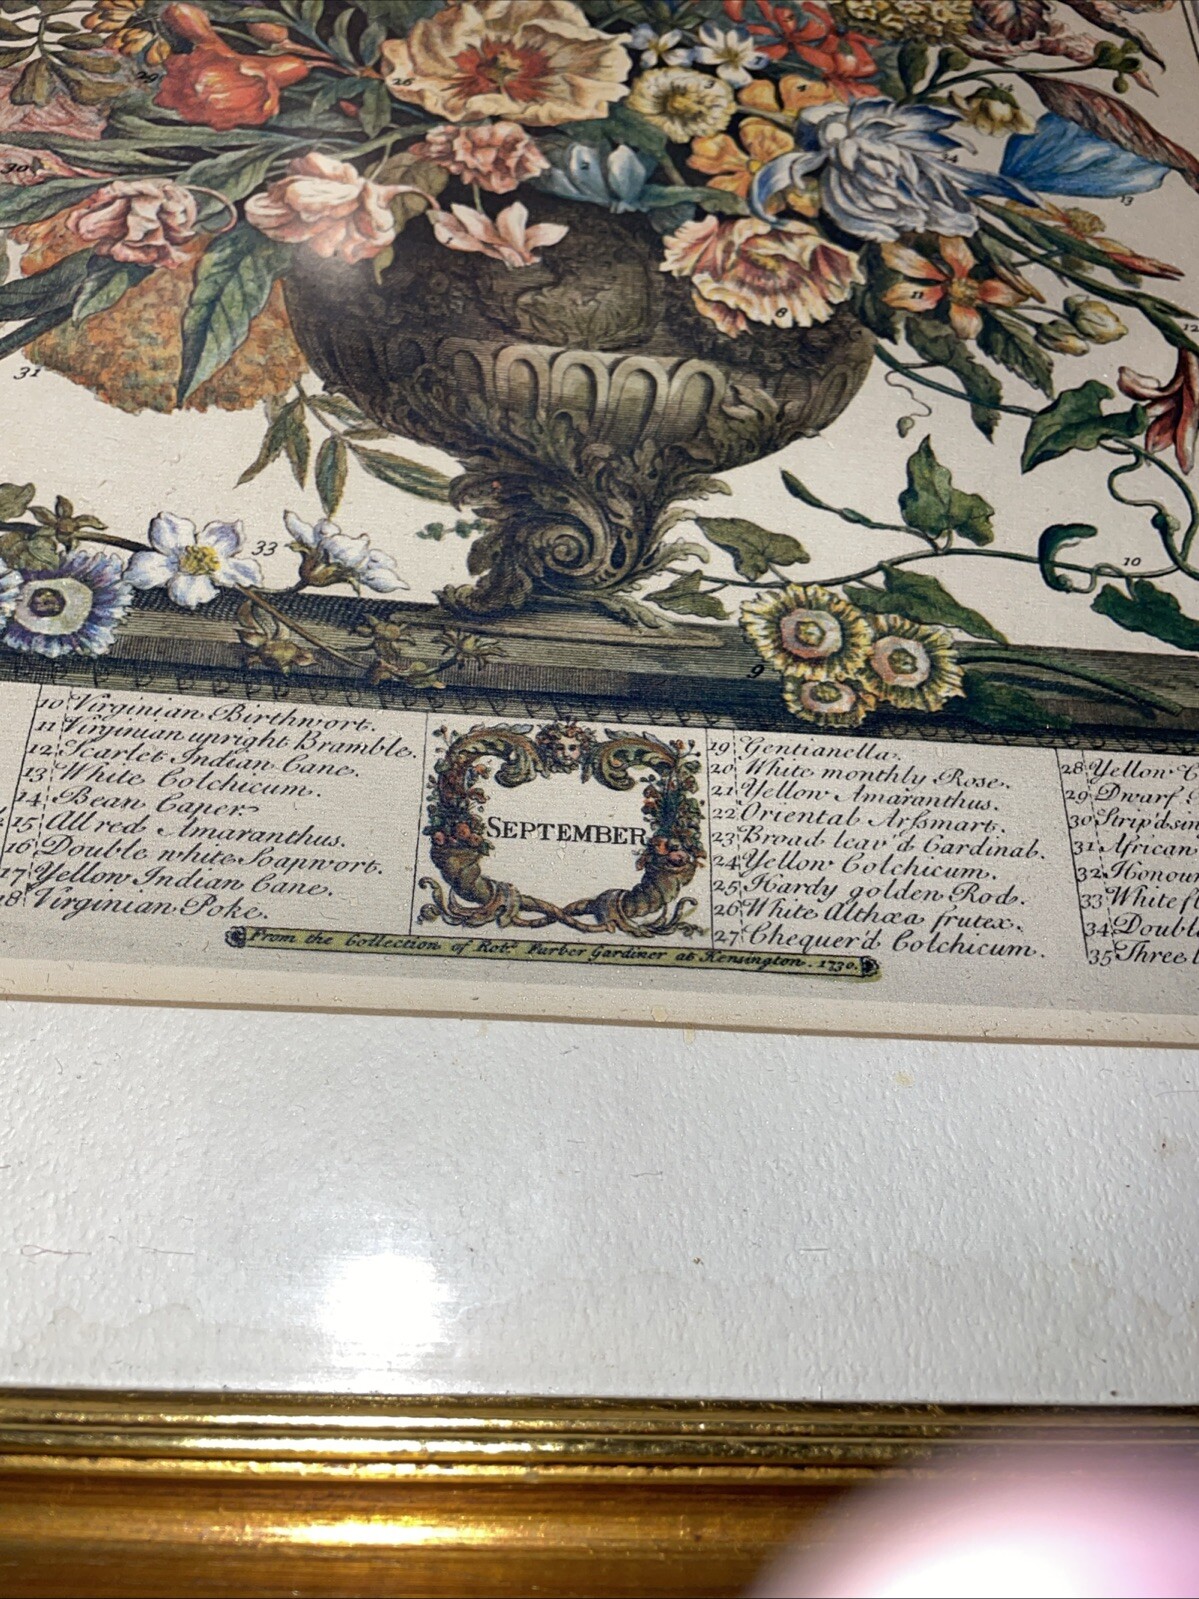 29
26
3
7
30
2
1
14
34
13
8
11
12
31
33
10
9
10 Virginian Birthwort.
11 Virginian upright Bramble.
12 Scarlet Indian Cane.
13 White Colchicum.
14 Bean Caper.
15 All red Amaranthus.
16 Double white Soapwort.
17 Yellow Indian Cane.
18 Virginian Poke.
SEPTEMBER
19 Gentianella.
20 White monthly Rose.
21 Yellow Amaranthus.
22 Oriental Arsmart.
23 Broad leav'd Cardinal.
24 Yellow Colchicum.
25 Hardy golden Rod.
26 White Althæa frutex.
27 Chequer'd Colchicum.
28 Yellow C
29 Dwarf
30 Strip'd sin
31 African
32 Honour
33 White fl
34 Doubl
35 Three l
From the Collection of Robt. Furber Gardiner at Kensington. 1730.